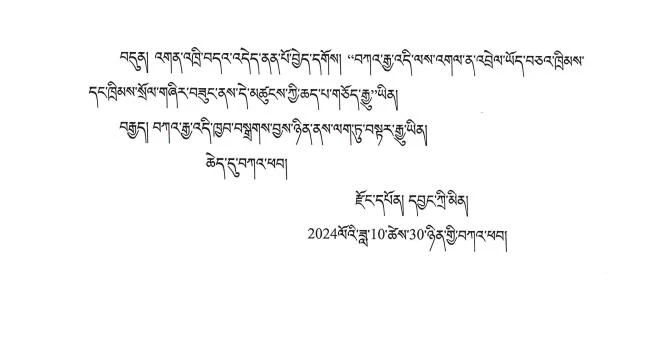 བདུན། འགན་འཁྲི་བདའ་འདེད་ནན་པོ་བྱེད་དགོས། “བཀའ་རྒྱ་འདི་ལས་འགལ་ན་འབྲེལ་ཡོད་བཅའ་ཁྲིམས་
དང་ཁྲིམས་སྲོལ་གཞིར་བཟུང་ནས་དེ་མཚུངས་ཀྱི་ཆད་པ་གཅོད་རྒྱུ”ཡིན།
བརྒྱད། བཀའ་རྒྱ་འདི་ཁྱབ་བསྒྲགས་བྱས་ཉིན་ནས་ལག་ཏུ་བསྟར་རྒྱུ་ཡིན།
ཆེད་དུ་བཀའ་ཕབ།
རྫོང་དཔོན། དབྱང་ཀྲི་མིན།
2024ལོའི་ཟླ་10་ཚེས་30་ཉིན་གྱི་བཀའ་ཕབ།